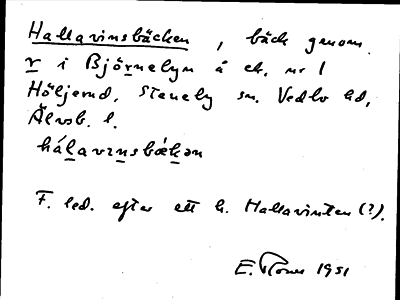 Hallavinsbäcken, bäck genom
v i Björnelyn å ek. nr 1
Höljerud, Stenely sn. Vedbo hd,
Älvsb. l.
hálavinsbækən
F. led. efter ett h. Hallavinten (?).
E. 1951